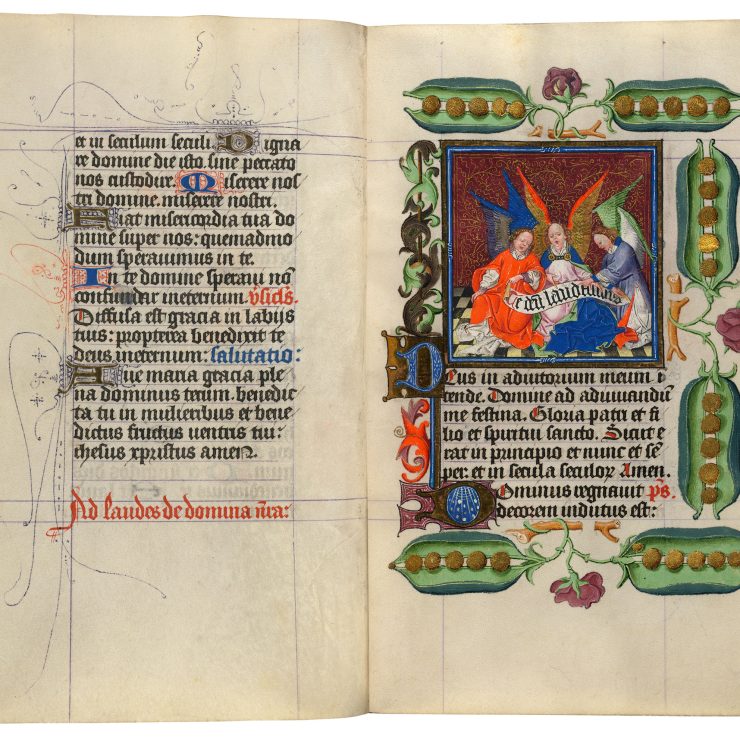 et in seculum seculi. Digna
re domine die isto. sine peccato
nos custodire. Miserere nos
tri domine. miserere nostri.
Fiat misericordia tua do
mine super nos: quemadmo
dum speravimus in te.
In te domine speravi nō
confundar ineternum. v̄siclꝰ.
Diffusa est gracia in labijs
tuis: propterea benedixit te
deus ineternum: salutatio:
Ave maria gracia ple
na dominus tecum. benedic
ta tu in mulieribus et bene
dictus fructus ventris tui:
ihesus xpristus amen.
Ad laudes de domina n̄ra:
Te deū laudamus
Deus in adiutorium meum i
tende. Domine ad adiuvandū
me festina. Gloria patri et fi
lio et spiritui sancto. Sicut e
rat in principio et nunc et sē
per: et in secula seculoꝝ Amen.
Dominus regnavit p̄s.
decorem indutus est: